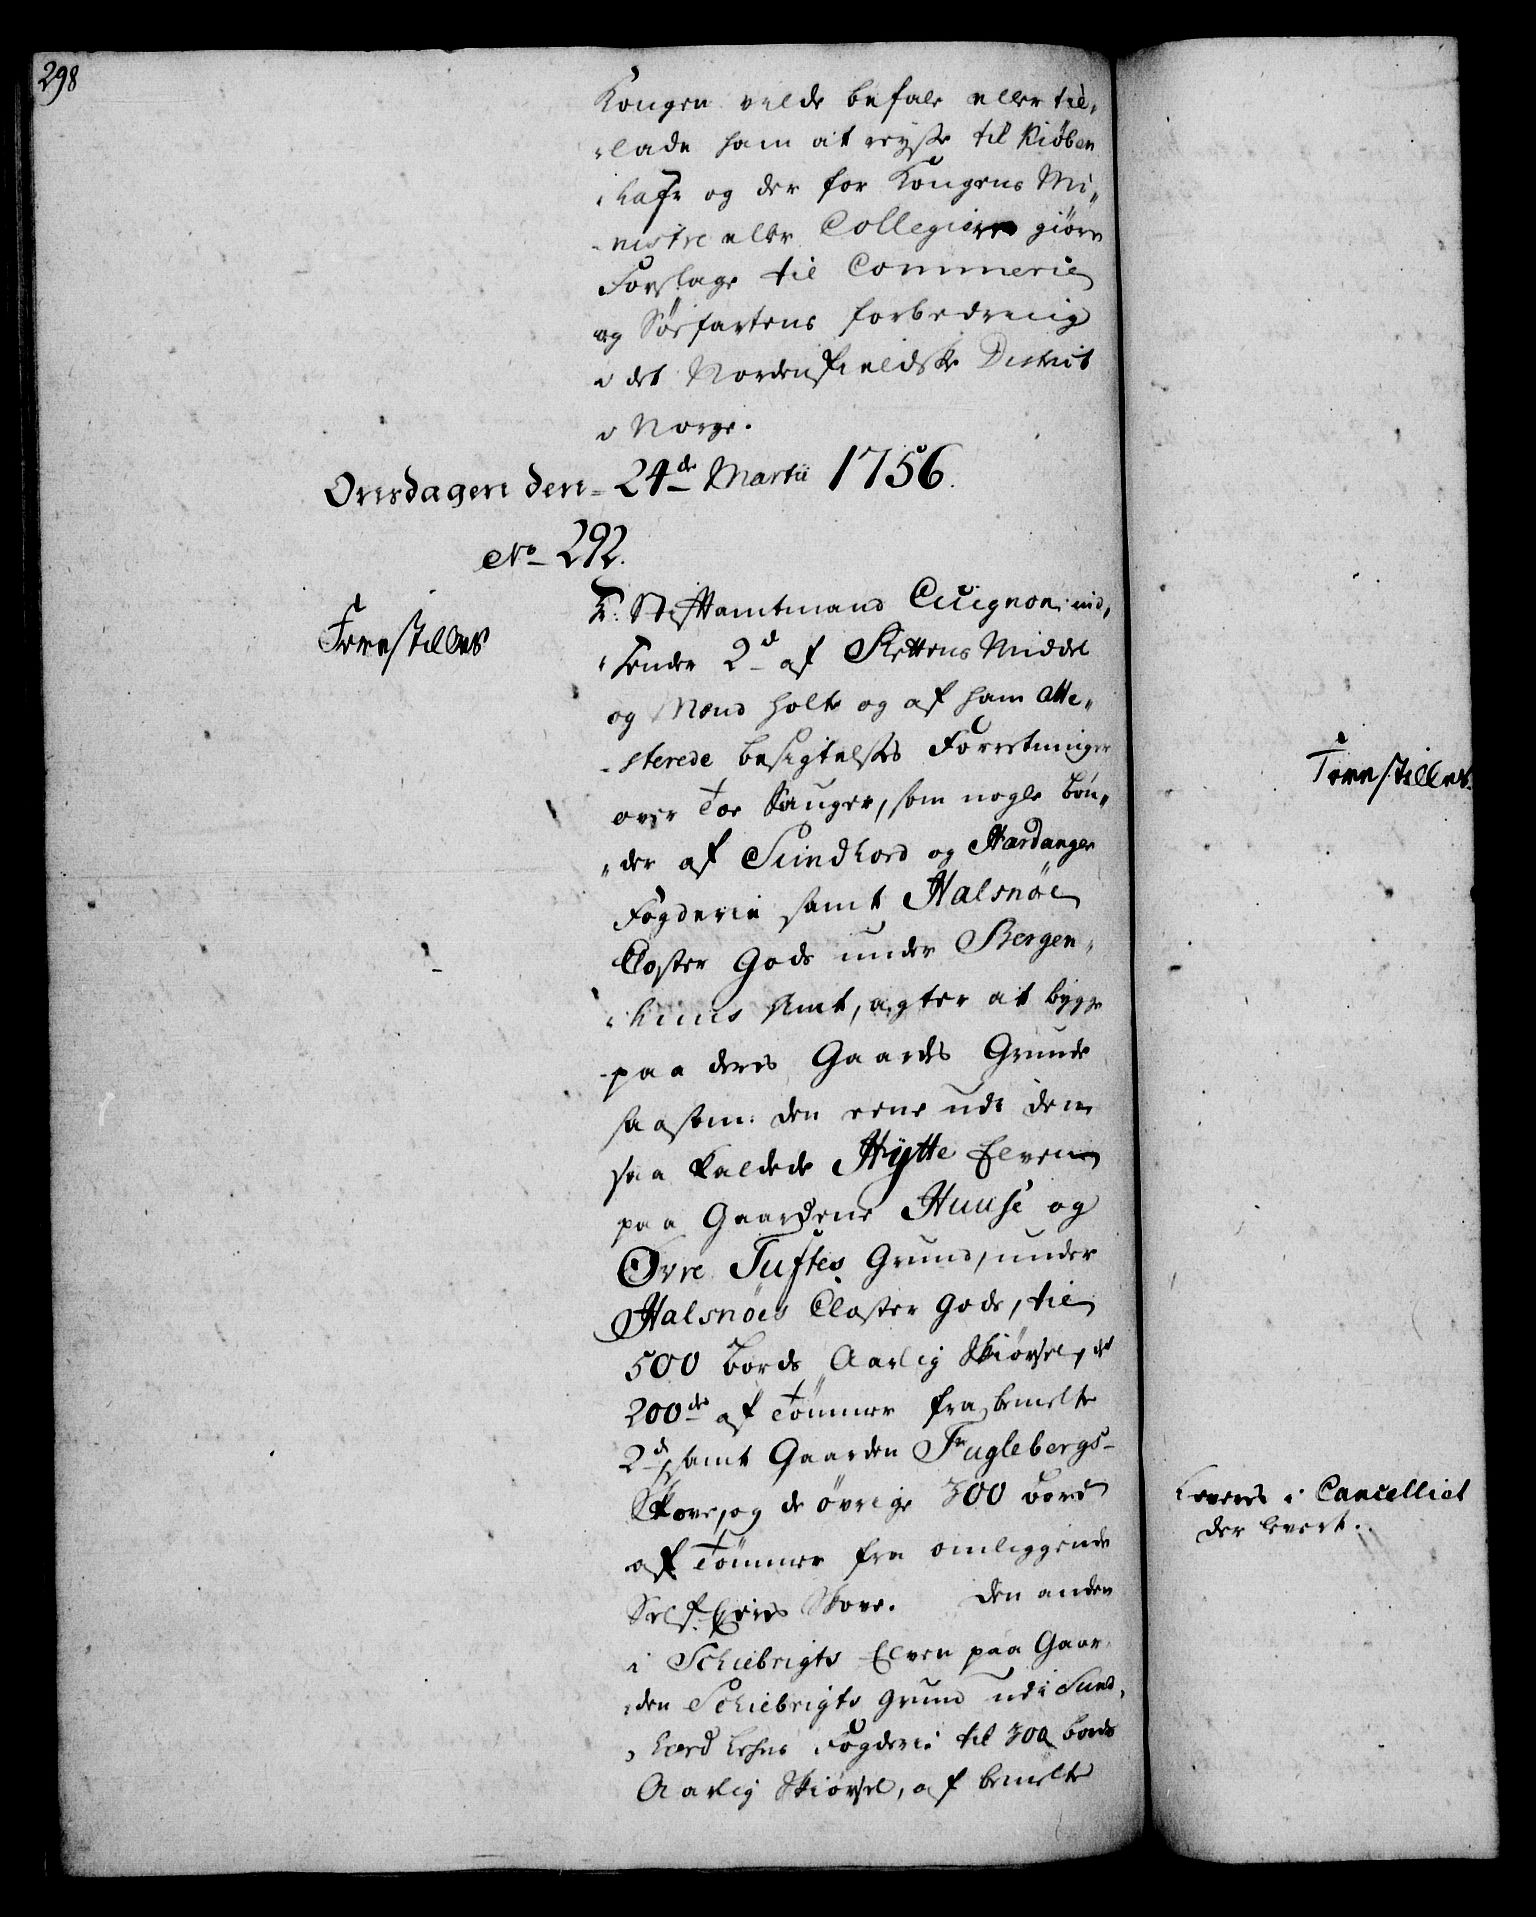 298
Kongen vilde befale eller til„
„lade ham at reyse til Kiøben
„hafn og der for Kongens Mi„
„nistre eller Collegierne giøre
Forslage til Commercie
og Søefartens forbedring
i det Nordenfieldske District
i Norge.
Onsdagen den 24de Martii 1756.
No 292.
Forestilles
T. Stiftamtmand Cicignon ind„
„sender 2de af Rettens Middel
og Mænd holte og af ham atte„
„sterede besigtelses Forretninger
over Toe Sauger, som nogle bøn„
„der af Sundhord og Hardanger
Fogderie samt Halsnøe
Closter Gods under Bergen„
„huus Amt, agter at bygge
paa deres Gaardes Grunde
saasom: den eene udi den
saa kaldede Hytte Elven
paa Gaardene Huuse og
Øvre Tuftes Grund, under
Halsnøes Closter Gods, til
500 bords Aarlig Skiørsel, de
200de af Tømmer fra bemelte
2de samt Gaarden Fuglebergs
Skove, og de øvrige 300 bord
af Tømmer fra omliggende
Self-Eiers Skove. Den anden
i Schiebrigts Elven paa Gaar„
„den Schiebrigts Grund udi Sund„
„hord Lehns Fogderi til 300 bords
Aarlig Skiørsel, af bemelte
Forestilles.
Leveres i Cancelliet
der levert.